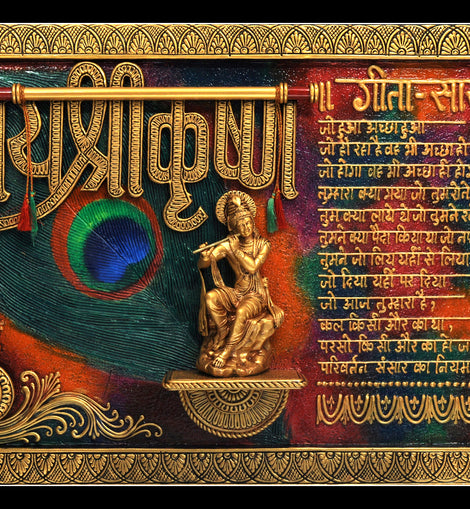 य श्रीकृष्ण
॥ गीता-सा
जो हुआ अच्छा हुआ
जो हो रहा है वह भी अच्छा हो
जो होगा वह भी अच्छा ही होग
तुम्हारा क्या गया जो तुम रोते
तुम क्या लाये थे जो तुमने
तुमने क्या पैदा किया था जो
तुमने जो लिए यहीं से लिया
जो दिया यहीं पर दिया
जो आज तुम्हारा है,
कल किसी और का था,
परसों किसी और का हो जा
परिवर्तन संसार का नियम